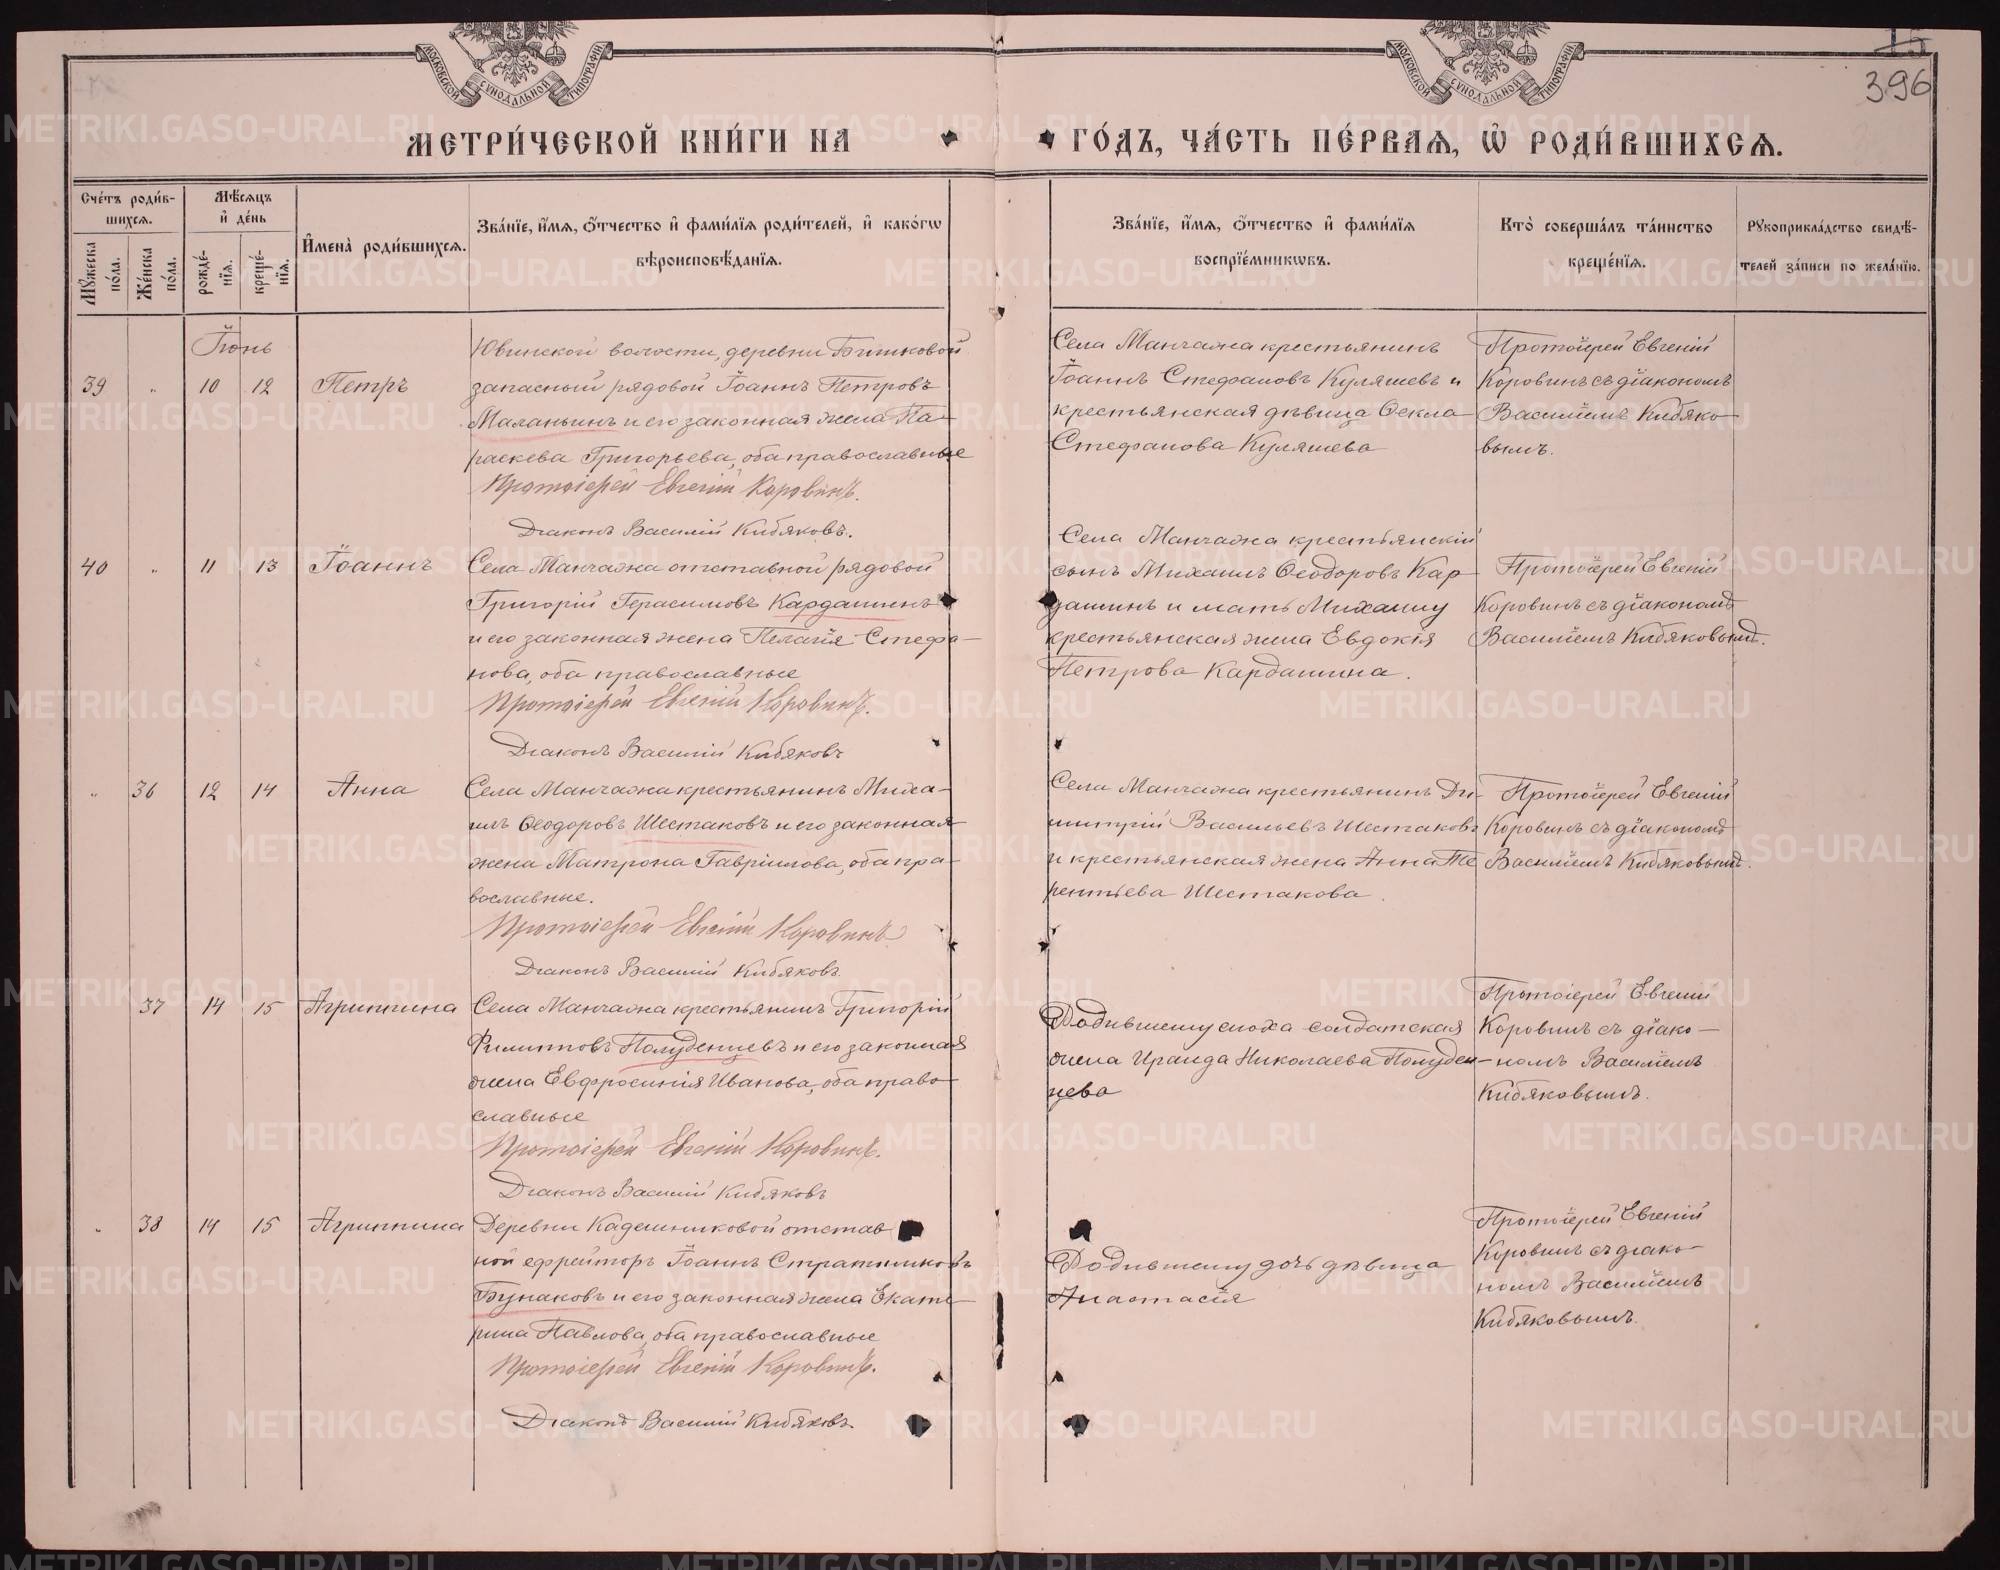 МОСКОВСКОЙ СУНОДАЛЬНОЙ ТИПОГРАФІИ
МОСКОВСКОЙ СУНОДАЛЬНОЙ ТИПОГРАФІИ
15
396
МЕТРИ́ЧЕСКОЙ КНИ́ГИ НА
ГО́ДЪ, ЧА́СТЬ ПЕ́РВАЯ, Ѽ РОДИ́ВШИХСЯ.
Сче́тъ роди́в-
шихся.
Мꙋжеска по́ла.
Же́нска по́ла.
Мѣ́сяцъ
и҆ де́нь
рожде́-
нїя.
креще́-
нїя.
И҆мена̀ роди́вшихся.
Зва́нїе, и҆́мя, ѻ҆́тчество и҆ фами́лїя роди́телей, и҆ како́гѡ
вѣроисповѣ́данїя.
Зва́нїе, и҆́мя, ѻ҆́тчество и҆ фами́лїя
воспрїе́мникѡвъ.
Кто̀ соверша́лъ та́инство
креще́нїя.
Рꙋкоприкла́дство свидѣ́-
телей за́писи по жела́нїю.
Іюнь
39 " 10 12 Петръ
Ювинской волости, деревни
запасный рядовой Іоаннъ Петровъ
Маланьинъ и его законная жена Па-
раскева Григорьева, оба православные
Протоіерей Евгеній Коровинъ.
Діаконъ Василій Кибяковъ.
Села Манчажа крестьянинъ
Іоаннъ Стефановъ Куляшевъ и
крестьянская дѣвица Ѳекла
Стефанова Куляшева
Протоіерей Евгеній
Коровинъ съ діакономъ
Василіемъ Кибяко-
вымъ.
40 " 11 13 Іоаннъ
Села Манчажа отставной рядовой
Григорій Герасимовъ Кардашинъ
и его законная жена Пелагія Стефа-
нова, оба православные
Протоіерей Евгеній Коровинъ.
Діаконъ Василій Кибяковъ
Села Манчажа крестьянскій
сынъ Михаилъ Ѳеодоровъ Кар-
дашинъ и мать Михаилу
крестьянская жена Евдокія
Петрова Кардашина.
Протоіерей Евгеній
Коровинъ съ діакономъ
Василіемъ Кибяковымъ.
" 36 12 14 Анна
Села Манчажа крестьянинъ Миха-
илъ Ѳеодоровъ Шестаковъ и его законная
жена Матрона Гавріилова, оба пра-
вославные.
Протоіерей Евгеній Коровинъ
Діаконъ Василій Кибяковъ.
Села Манчажа крестьянинъ Ди-
митрій Васильевъ Шестаковъ
и крестьянская жена Анна Те
рентьева Шестакова.
Протоіерей Евгеній
Коровинъ съ діакономъ
Василіемъ Кибяковымъ.
37 14 15 Агриппина
Села Манчажа крестьянинъ Григорій
Филипповъ Полуденцевъ и его законная
жена Евфросинія Иванова, оба право-
славные
Протоіерей Евгеній Коровинъ.
Діаконъ Василій Кибяковъ
Родившему сноха солдатская
жена Ираида Николаева Полуден-
цева
Протоіерей Евгеній
Коровинъ съ діако-
номъ Василіемъ
Кибяковымъ.
" 38 14 15 Агриппина
Деревни Кадешниковой отстав
ной ефрейторъ Іоаннъ Стратониковъ
Бунаковъ и его законная жена Екате-
рина Павлова, оба православные
Протоіерей Евгеній Коровинъ.
Діаконъ Василій Кибяковъ
Родившему дочь дѣвица
Анастасія
Протоіерей Евгеній
Коровинъ съ діако-
номъ Василіемъ
Кибяковымъ.
METRIKI.GASO-URAL.RU